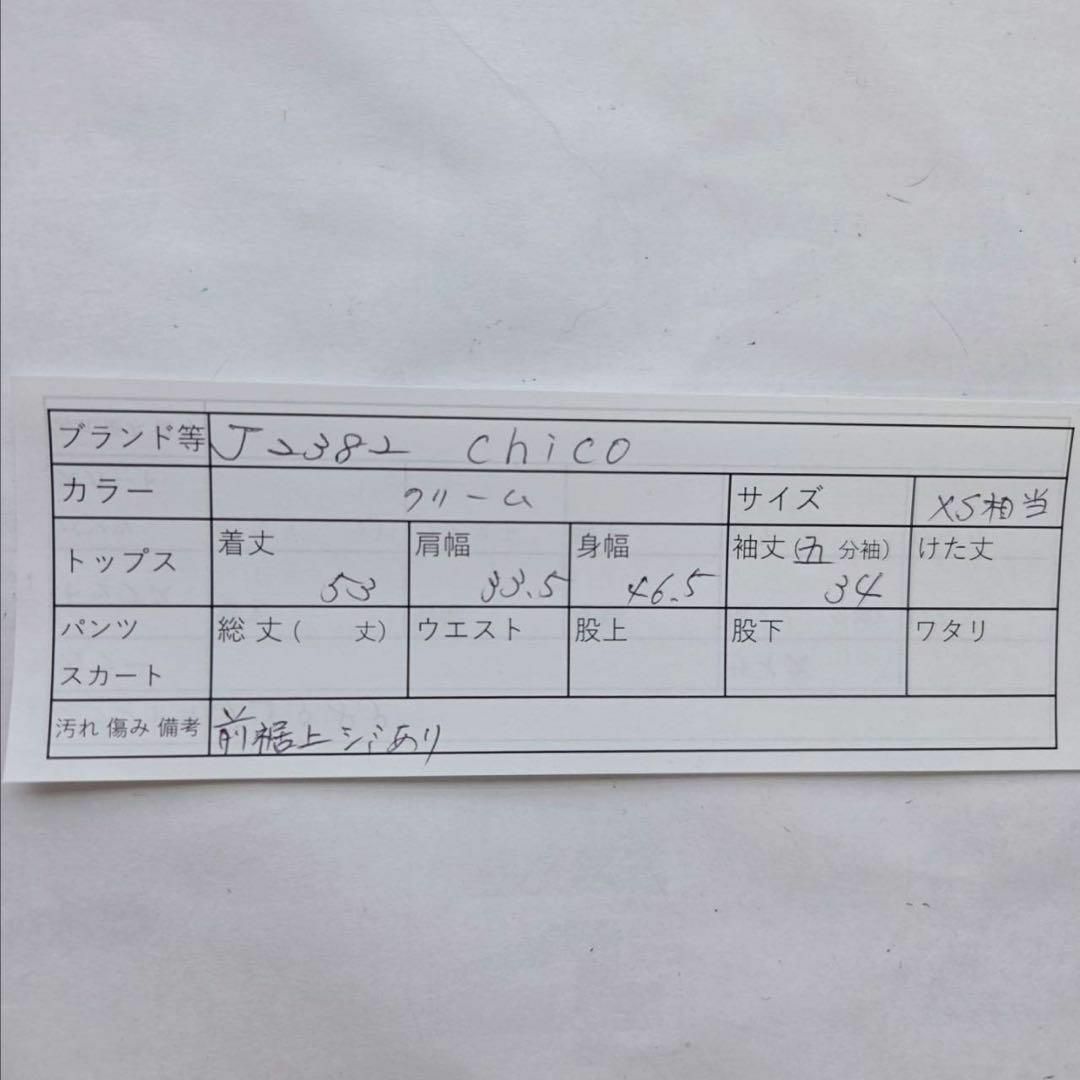 ブランド等 J2382 chico
カラー クリーム サイズ XS相当
トップス 着丈 53 肩幅 33.5 身幅 46.5 袖丈(五分袖) 34 けた丈
パンツ スカート 総丈( 丈) ウエスト 股上 股下 ワタリ
汚れ 傷み 備考 前裾上シミあり